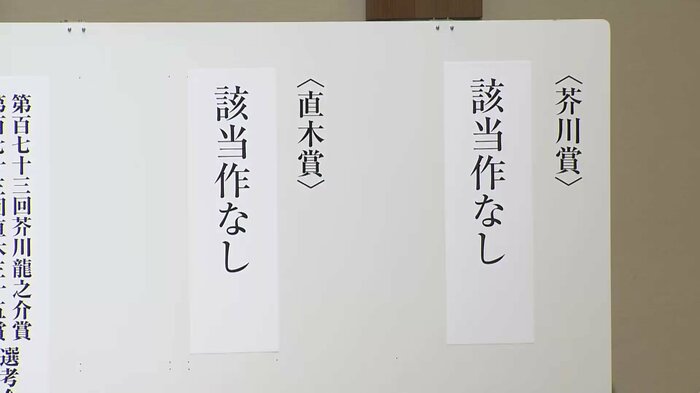 〈芥川賞〉
該当作なし
〈直木賞〉
該当作なし
第百七十三回芥川龍之介賞
第百七十三回直木三十五賞
選考